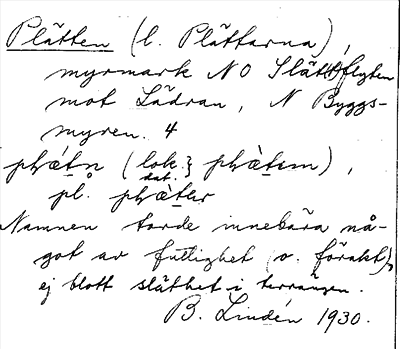 Plätten (l. Plättarna),
myrmark N O Slätflyten
mot Lädran, N Byggs-
myren. 4
phä̀tn (lok.} phä̀tom),
dat.
på pl. phä̀tar
Namnen torde innebära nå-
got av futtighet (o. förakt),
ej blott släthet i terrängen.
B. Lindén 1930.